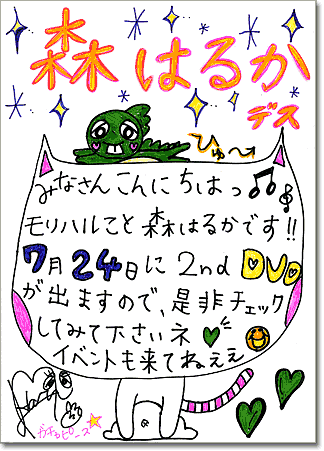 森はるか
デス
ひゅ〜
みなさんこんにちはっ
モリハルこと森はるかです!!
7月24日に2nd DVD
が出ますので、是非チェック
してみて下さいネ
イベントも来てねぇぇ
ガチャピース